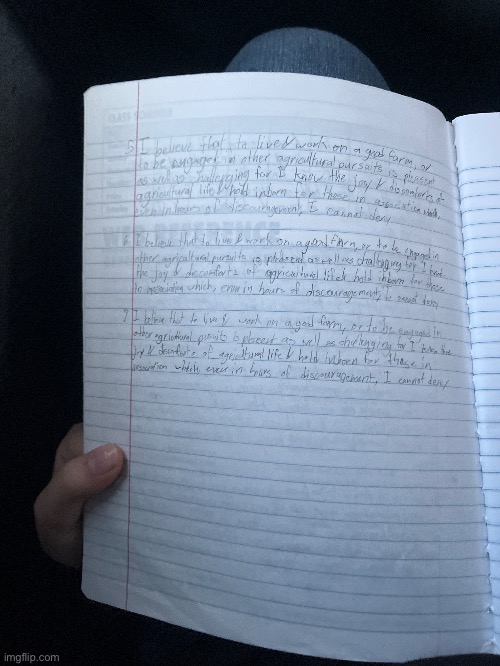 5 I believe that to live & work on a good farm, or
to be engaged in other agricultural pursuits is pleasent
as well as challenging for I know the joy & discomforts of
agricultural life & hold inborn for those in association which,
even in hours of discouragement, I cannot deny
6 I believe that to live & work on a good farm, or to be engaged in
other agricultural pursuits is pleasent as well as challenging for I know
the joy & discomforts of agricultural life & hold inborn for those
in association which, even in hours of discouragement, I cannot deny
7 I believe that to live & work on a good farm, or to be engaged in
other agricultural pursuits is pleasent as well as challenging for I know the
joy & discomforts of agricultural life & hold inborn for those in
association which, even in hours of discouragement, I cannot deny
imgflip.com